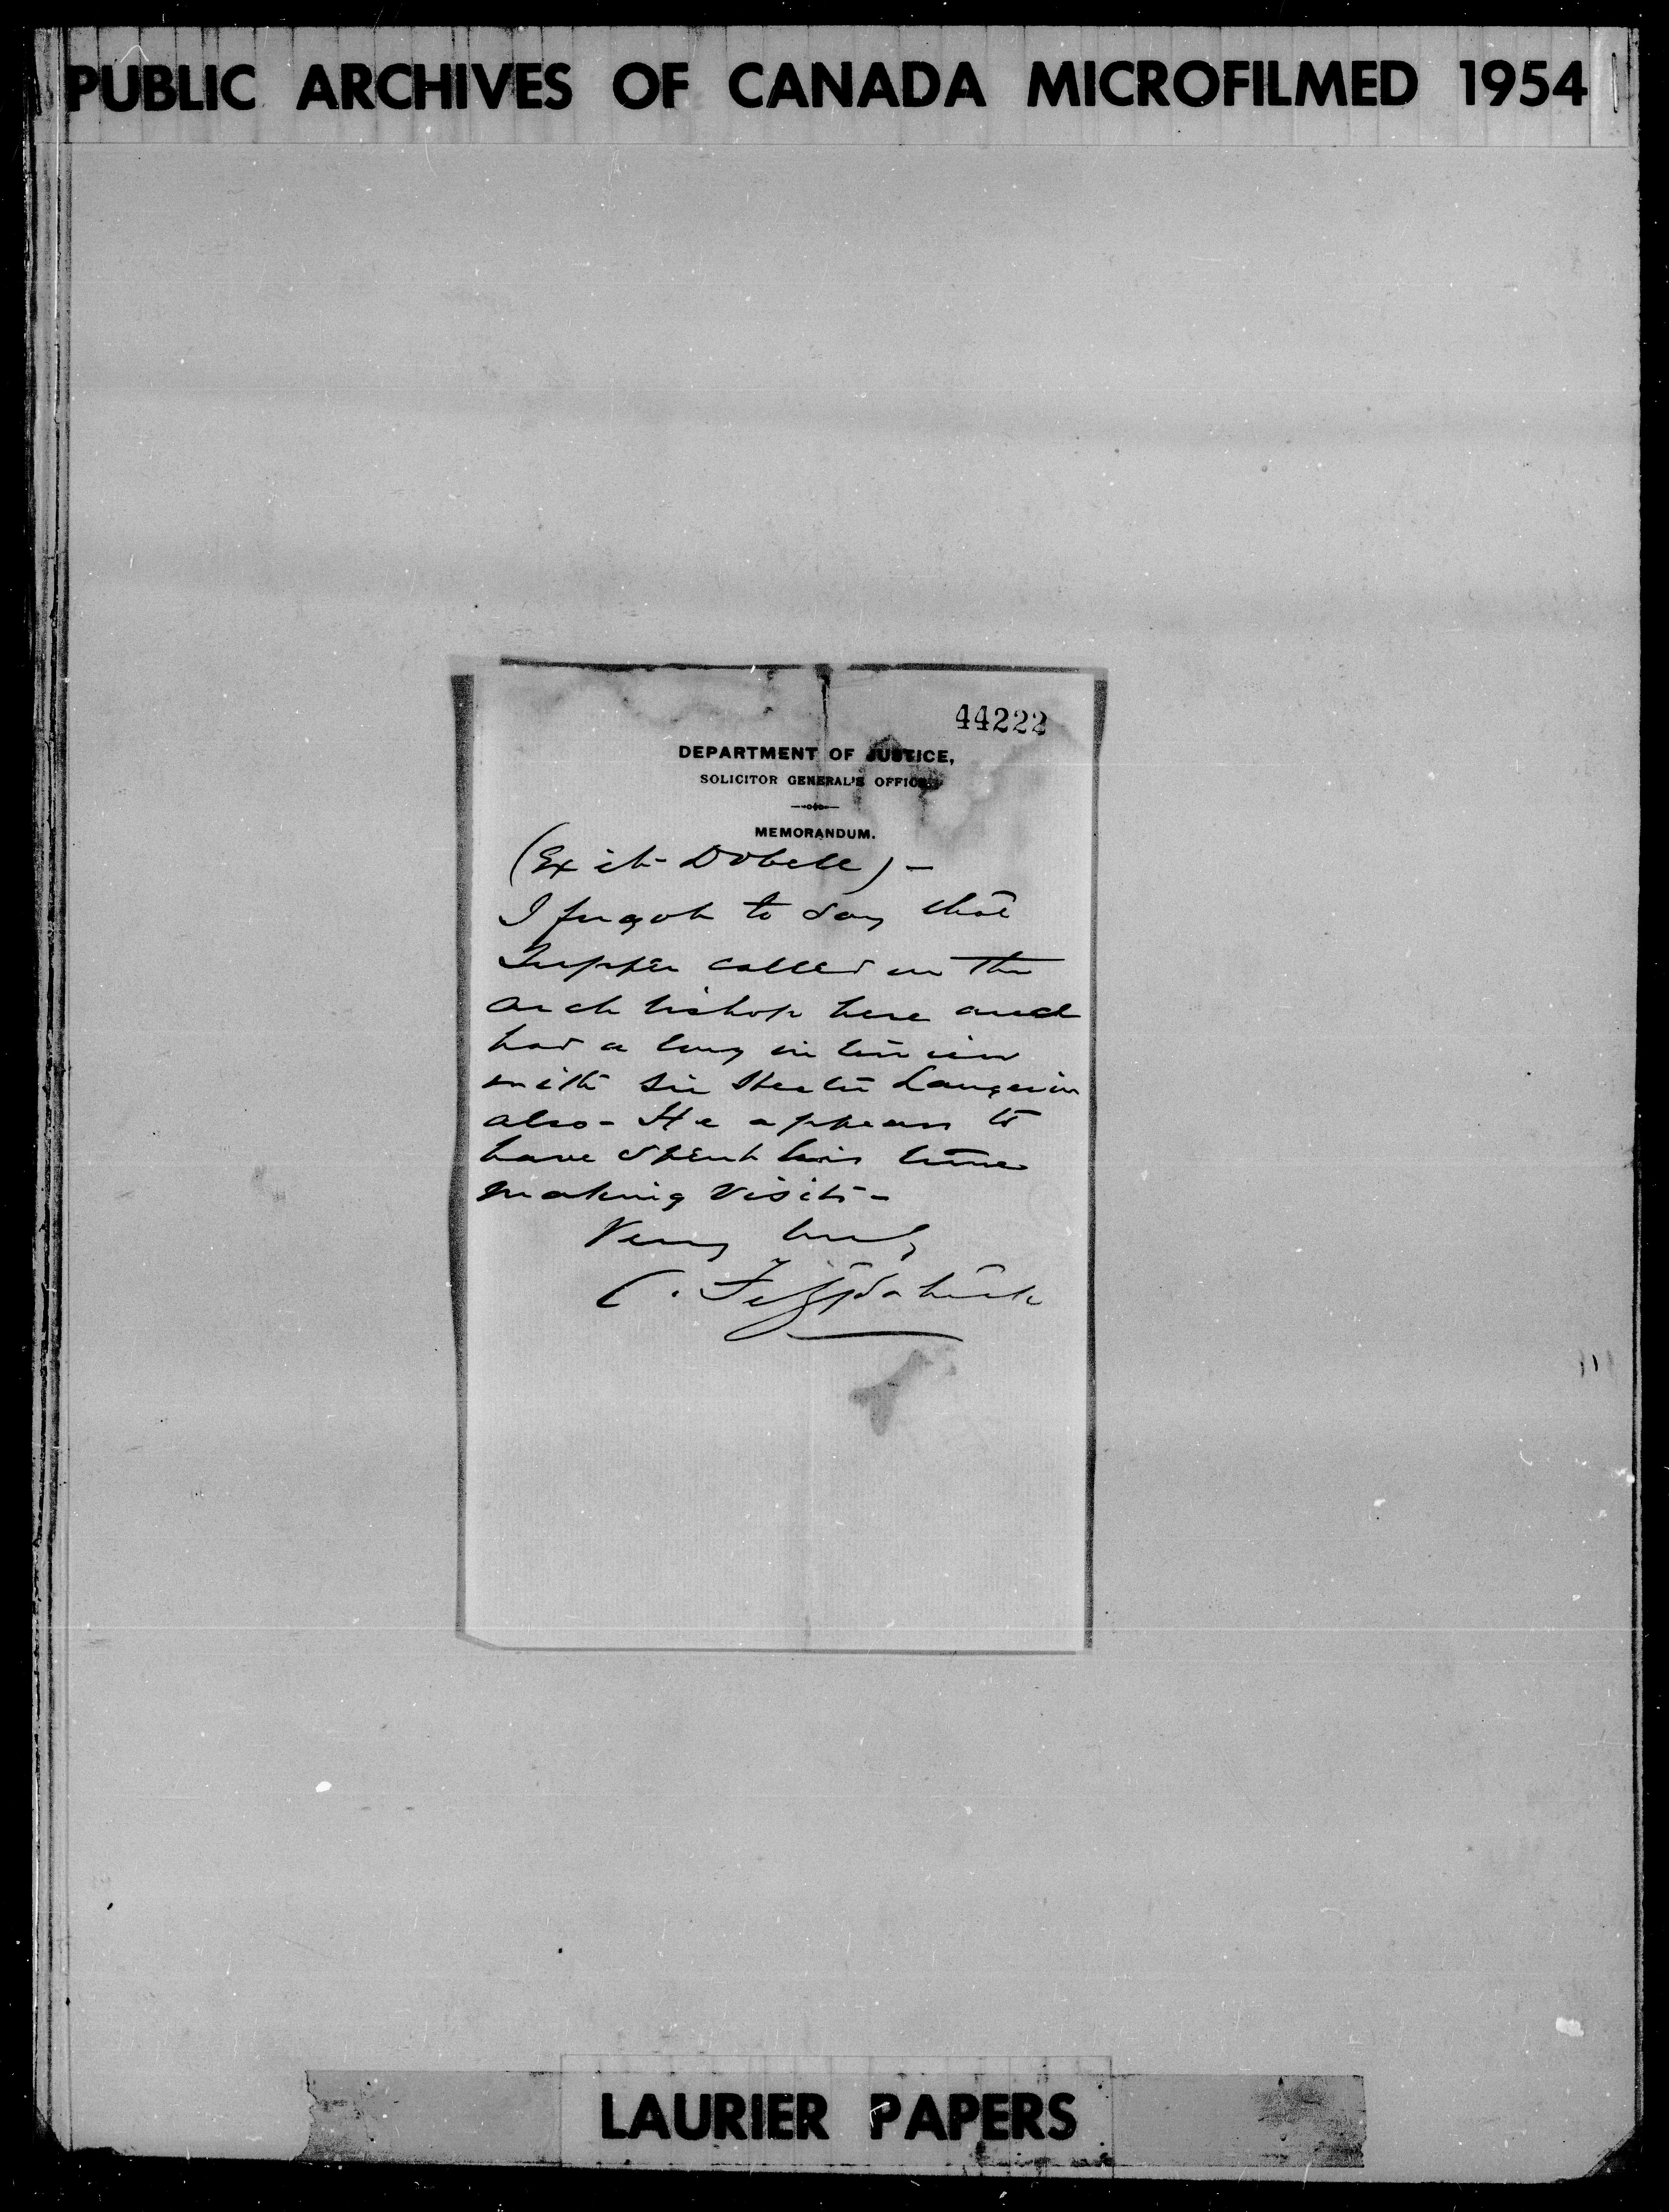 PUBLIC ARCHIVES OF CANADA MICROFILMED 1954
44222
DEPARTMENT OF JUSTICE,
SOLICITOR GENERAL'S OFFICE.
MEMORANDUM.
(Exit Dobell) -
I forgot to say that
Tupper called on the
arch bishop here and
had a long interview
with Sir Hector Langevin
also - He appears to
have spent his time
making visits -
Very truly
C. Fitzpatrick
LAURIER PAPERS